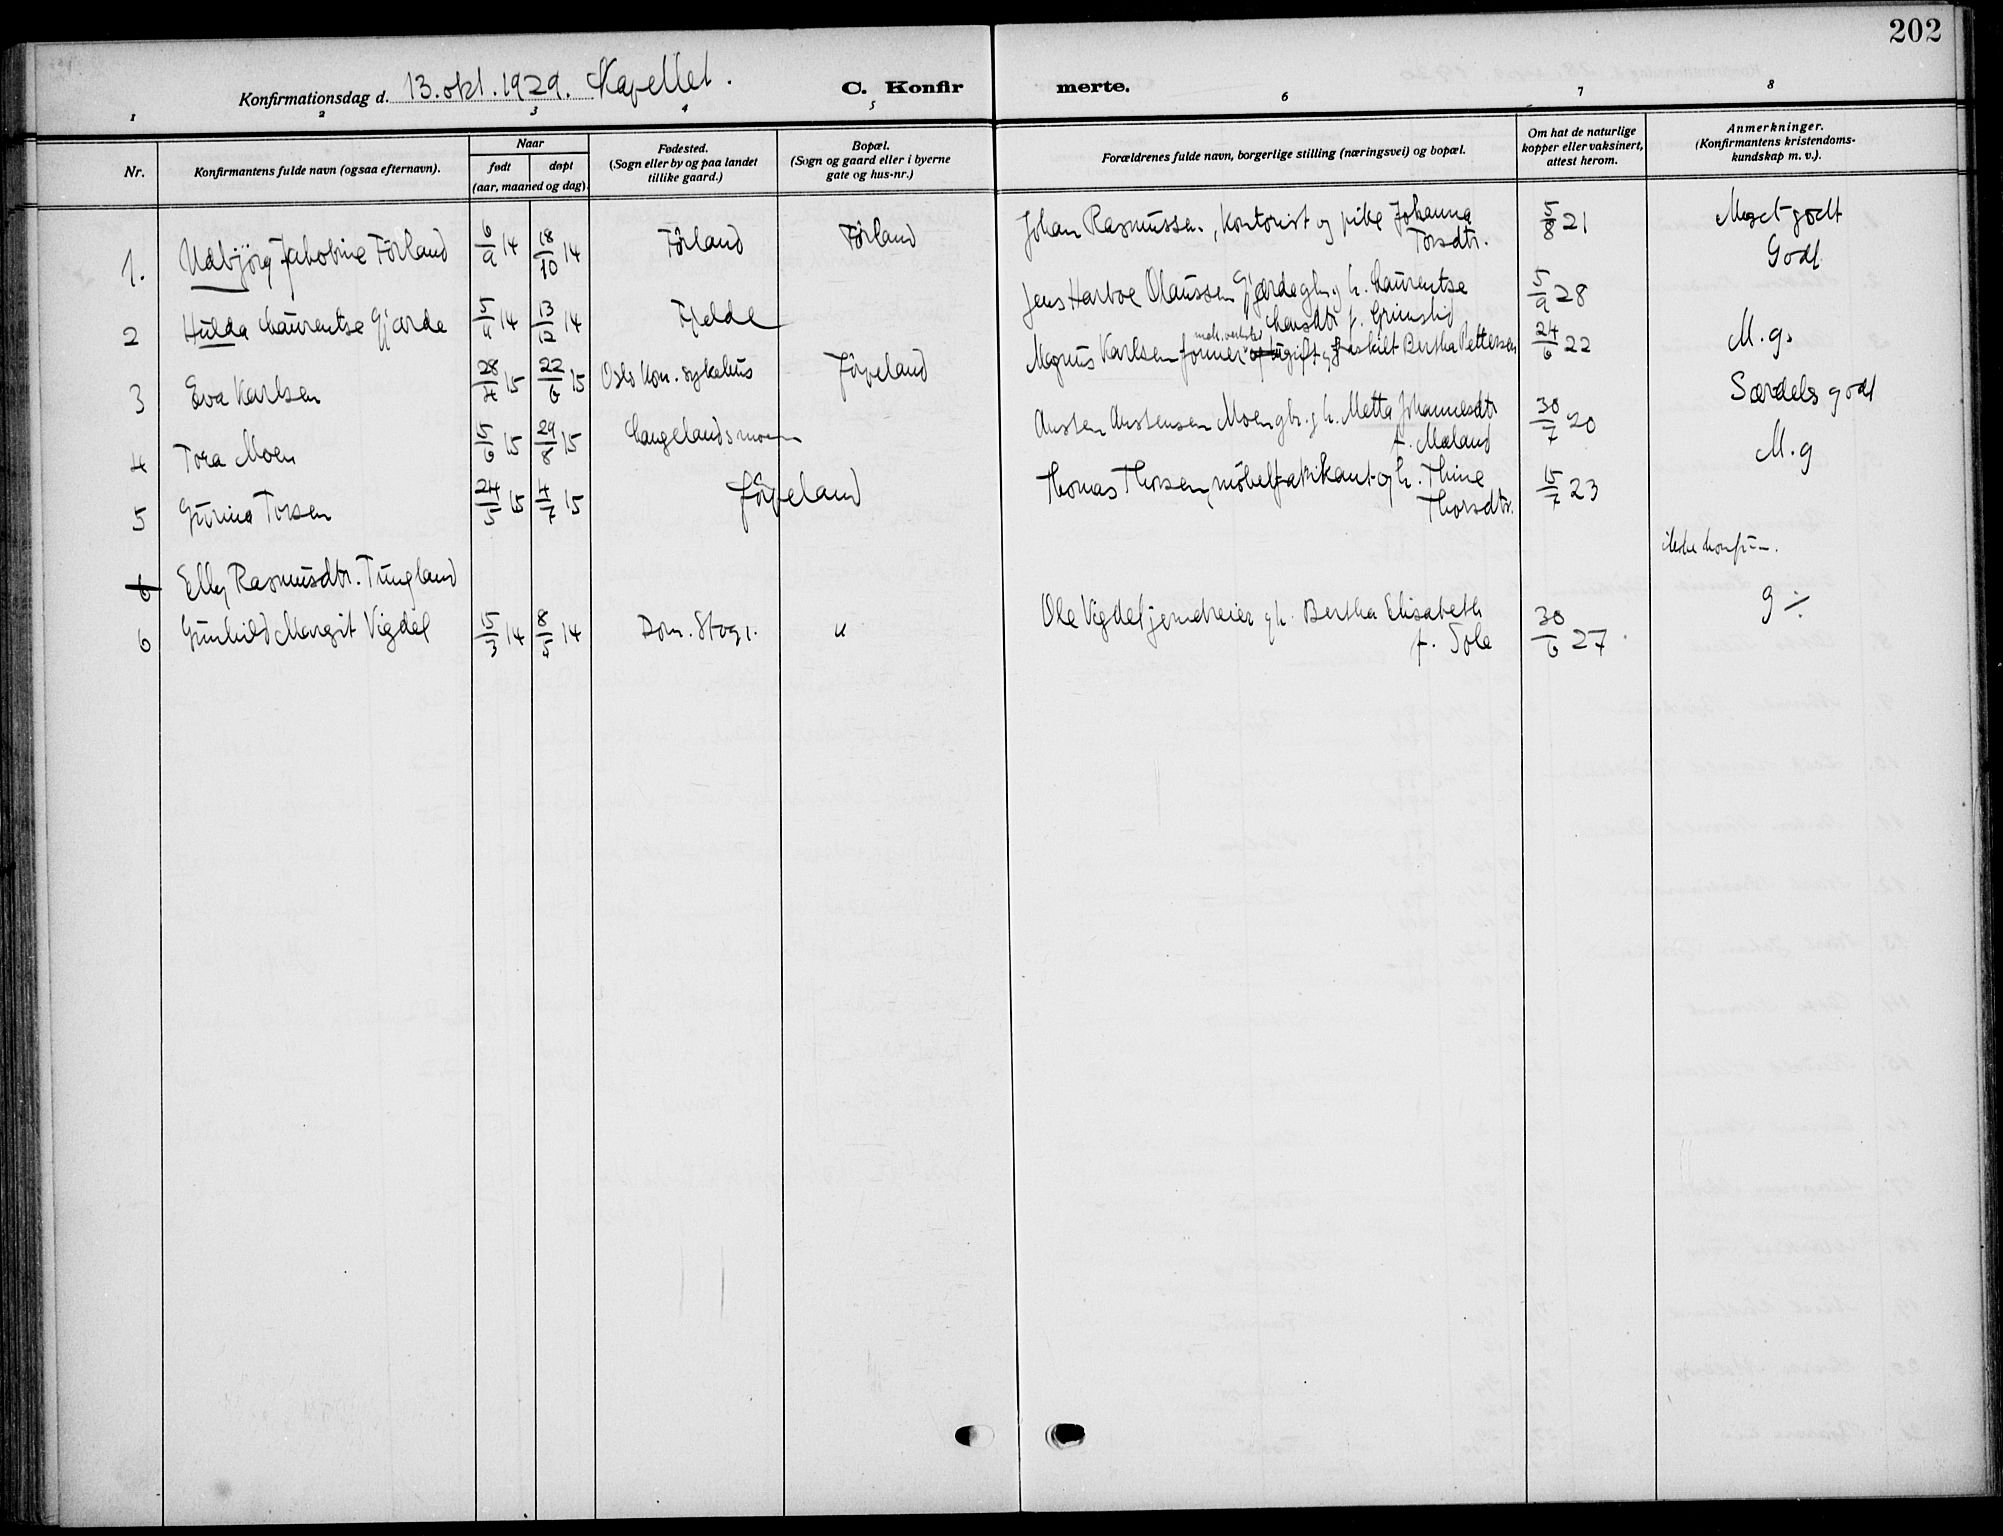 202
Konfirmationsdag d. 13. okt. 1929. Kapellet.
C. Konfirmerte.
1 2 3 4 5 6 7 8
Nr.
Konfirmantens fulde navn (ogsaa efternavn).
Naar
født
døpt
(aar, maaned og dag)
Fødested.
(Sogn eller by og paa landet
tillike gaard.)
Bopæl.
(Sogn og gaard eller i byerne
gate og hus-nr.)
Forældrenes fulde navn, borgerlige stilling (næringsvei) og bopæl.
Om hat de naturlige
kopper eller vaksinert,
attest herom.
Anmerkninger.
(Konfirmantens kristendoms-
kundskap m. v.).
1. Udbjörg Jakobine Förland 6/9 14 18/10 14 Förland Förland Johan Rasmussen, kontorist og pike Johanna
Torsdtr. 5/8 21 Meget godt
Godt
2 Hulda Laurentse Gjærde 13/12 14 Fjelde Jens Harboe Olaussen Gjærde gbr. og h. Laurentse
Larsdtr. f. Grimslid 5/9 28
3 Eva Karlsen 22/6 15 Oslo Kom. sykehus Jörpeland Magnus Karlsen former ugift og fraskilt Bertha Pettersen 24/6 22 M. g.
4 Tora Moen 5/6 15 29/8 15 Langelandsmoen Austen Austensen Moen gbr. og h. Metta Johannesdtr.
f. Mæland 30/7 20 Særdeles godt
5 Gurina Torsen 24/5 15 4/7 15 Jörpeland Thomas Thorsen, möbelfabrikant og h. Thine
Thorsdtr. 15/7 23 M. g
6 Elly Rasmusdtr. Tungland ikke konfirm.
6 Gunhild Margit Vigdel 15/3 14 8/5 14 Dom. Stvgr. " Ole Vigdel jerndreier og h. Bertha Elisabeth
f. Sole 30/6 27 g ÷